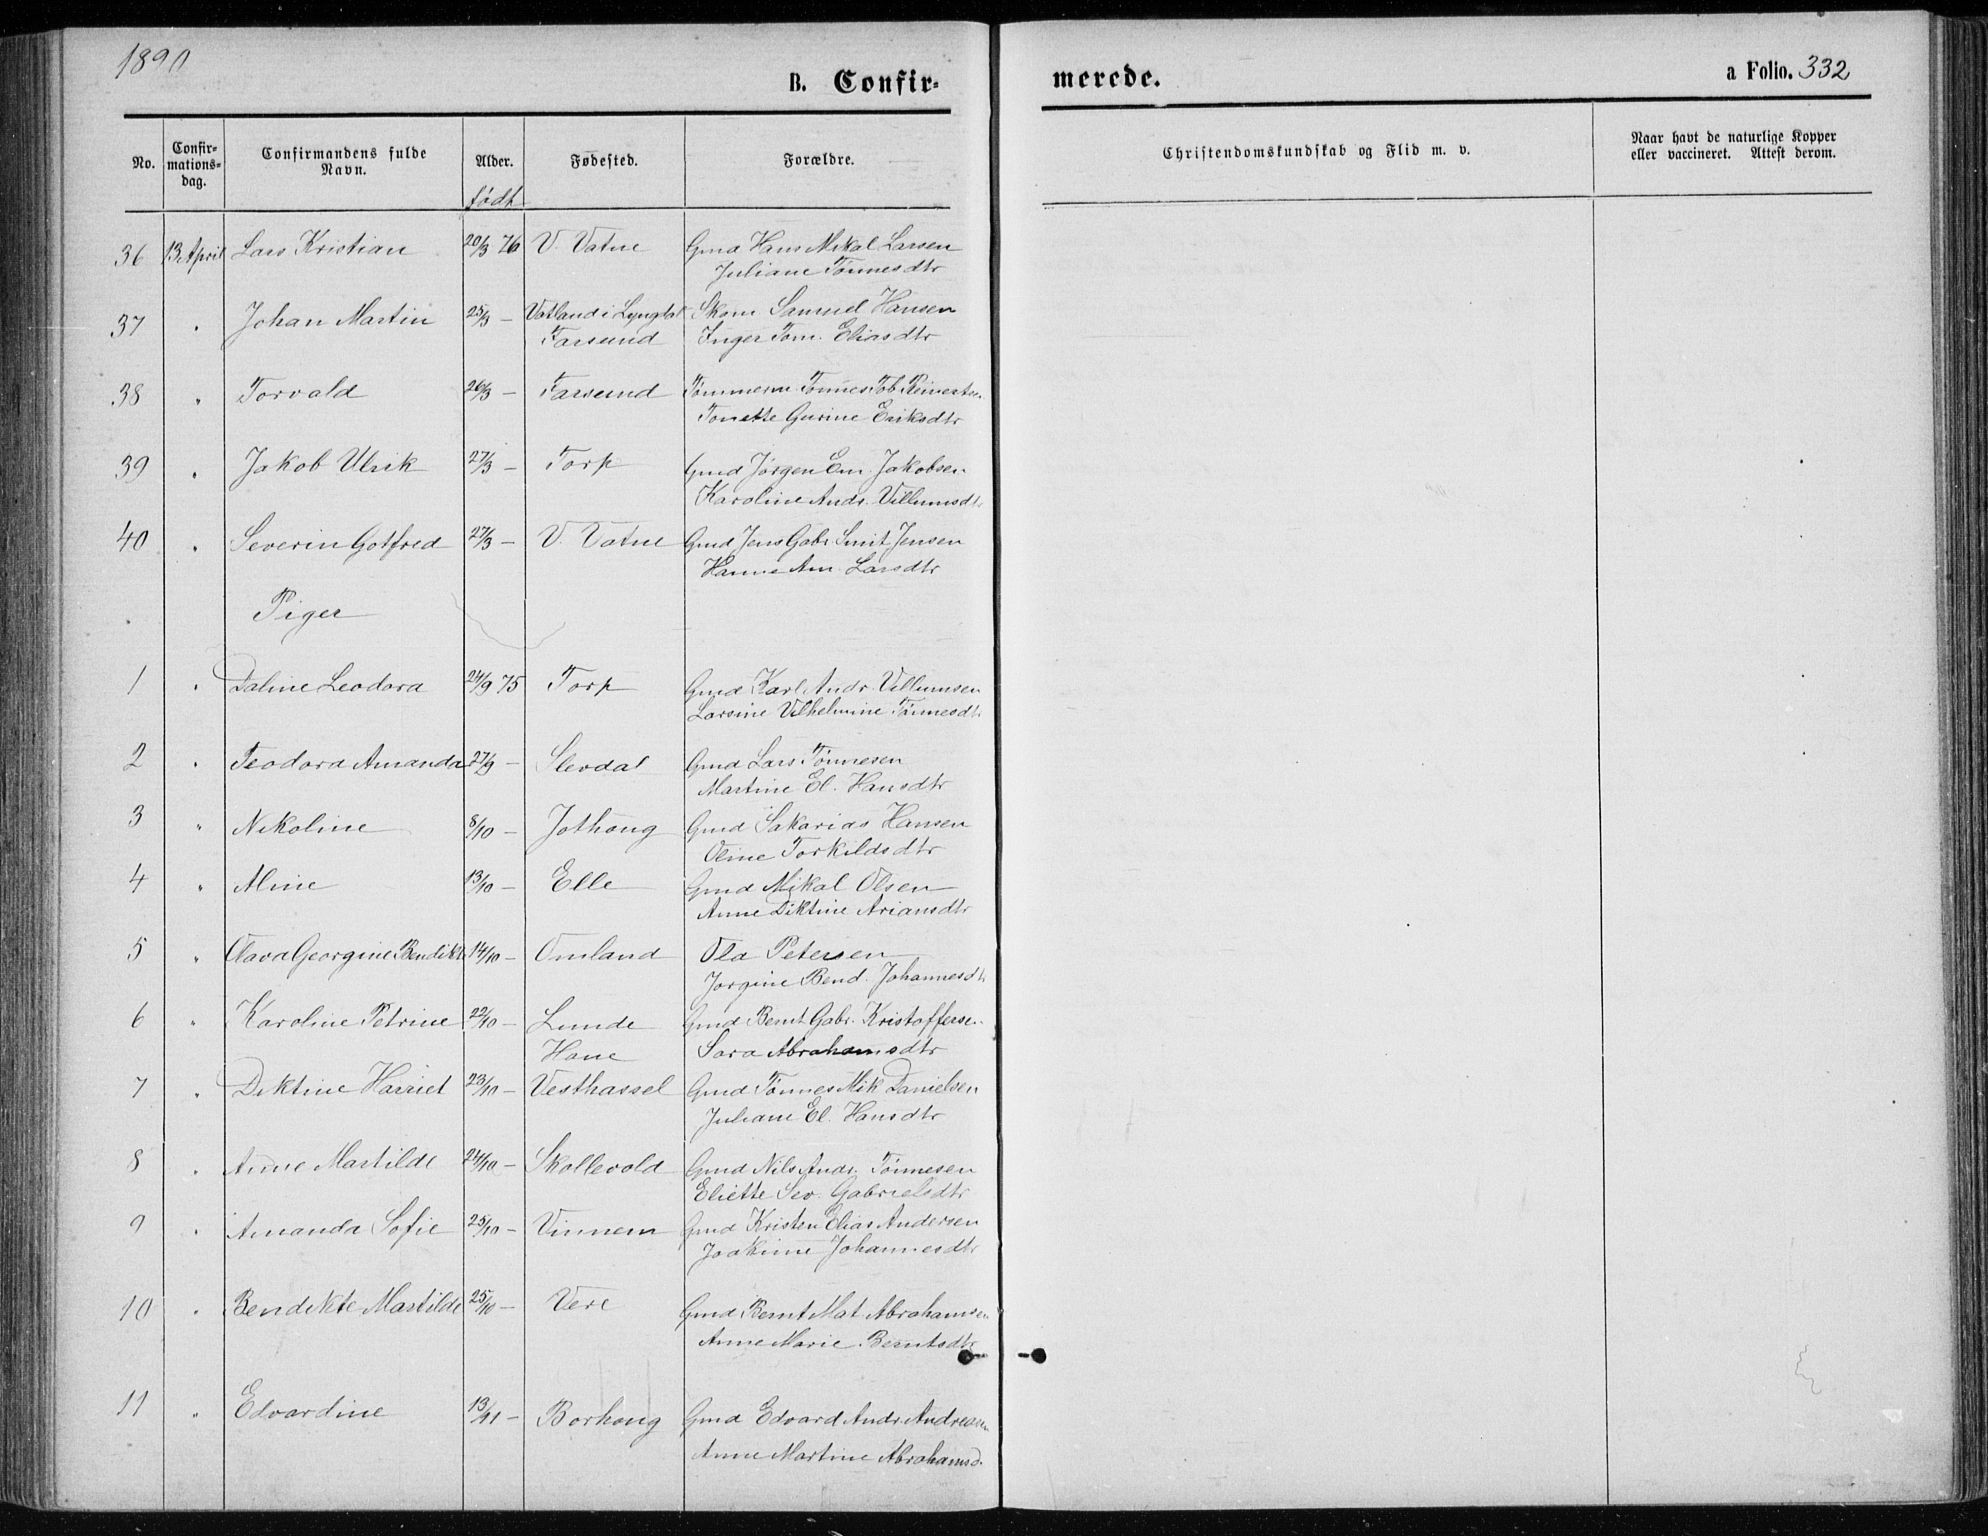 1890
B. Confir-
merede.
a Folio. 332
No. Confir-mations-dag. Confirmandens fulde Navn. Alder. Fødested. Forældre. Christendomskundskab og Flid m. v. Naar havt de naturlige Kopper eller vaccineret. Attest derom.
født
36 13 April Lars Kristian 20/3 76 V. Vatne Gmd Hans Mikal Larsen
Juliane Tønnesdtr
37 " Johan Martin 25/3 — Vatland i Lyngdal Skom Samuel Hansen
Farsund Inger Tom. Eliasdtr
38 " Torvald 26/3 — Farsund Tømmerm. Tønnes Tob. Reinertsen
Tonette Gurine Eriksdtr
39 " Jakob Ulrik 27/3 — Torp Gmd Jørgen Em. Jakobsen
Karoline Andr. Villumsdtr
40 " Severin Gotfred 27/3 — V. Vatne Gmd Jens Gabr Smit Jensen
Hanne Am. Larsdtr
Piger
1 " Daline Leodora 24/9 75 Torp Gmd Karl Andr. Villumsen
Larsine Vilhelmine Tønnesdtr
2 " Teodora Amanda 27/9 — Slevdal Gmd Lars Tønnesen
Martine El. Hansdtr
3 " Nikoline 8/10 — Jothong Gmd Sakarias Hansen
Oline Torkildsdtr
4 " Aline 13/10 — Elle Gmd Mikal Olsen
Anne Diktine Ariansdtr
5 " Olava Georgine Bendikte 14/10 — Omland Ola Petersen
Jorgine Bend. Johannesdtr
6 " Karoline Petrine 22/10 — Lunde Gmd Bernt Gabr. Kristoffersen
Hane Sara Abrahamsdtr
7 " Diktine Harriet 23/10 — Vesthassel Gmd Tønnes Mik Danielsen
Juliane El. Hansdtr
8 " Anne Martilde 24/10 — Skollevold Gmd Nils Andr. Tønnesen
Eliette Sev. Gabrielsdtr
9 " Amanda Sofie 25/10 — Vinnem Gmd Kristen Elias Andersen
Joakime Johannesdtr
10 " Bendikte Martilde 25/10 — Vere Gmd Bernt Mat Abrahamsen
Anne Marie Berntsdtr
11 " Edvardine 13/11 — Borhong Gmd Edvard Andr. Andreasen
Anne Martine Abrahamsd.